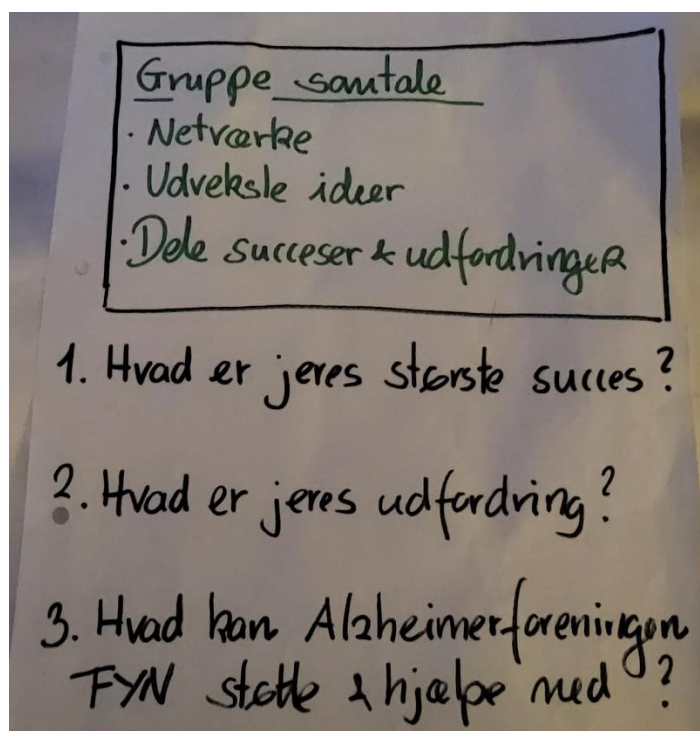 Gruppe samtale
· Netværke
· Udveksle ideer
· Dele succeser & udfordringer
1. Hvad er jeres største succes?
2. Hvad er jeres udfordring?
3. Hvad kan Alzheimerforeningen
FYN støtte & hjælpe med?